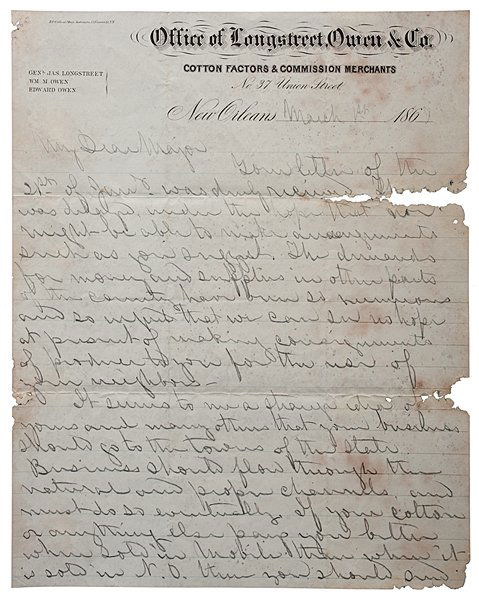 Office of Longstreet, Owen & Co.
COTTON FACTORS & COMMISSION MERCHANTS
No 37 Union Street
GENL JAS. LONGSTREET
WM M OWEN
EDWARD OWEN
New Orleans March 1st 186
My Dear Major
Your letter of the
21st of was duly received
was delayed, under the hope that we
might be able to make arrangements
such as you suggest. The demands
for money and supplies in other parts
of the country have been so numerous
and so urgent that we can see no hope
at present of making consignments
of produce to you for the use of
your neighbors—
It seems to me a strange idea of
yours and many others that your business
should go to the towns of the State.
Business should flow through the
natural and proper channels, and
must do so eventually. If your cotton
or anything else pays you better
when sold in Mobile than when it
is sold in N.O. then you should send